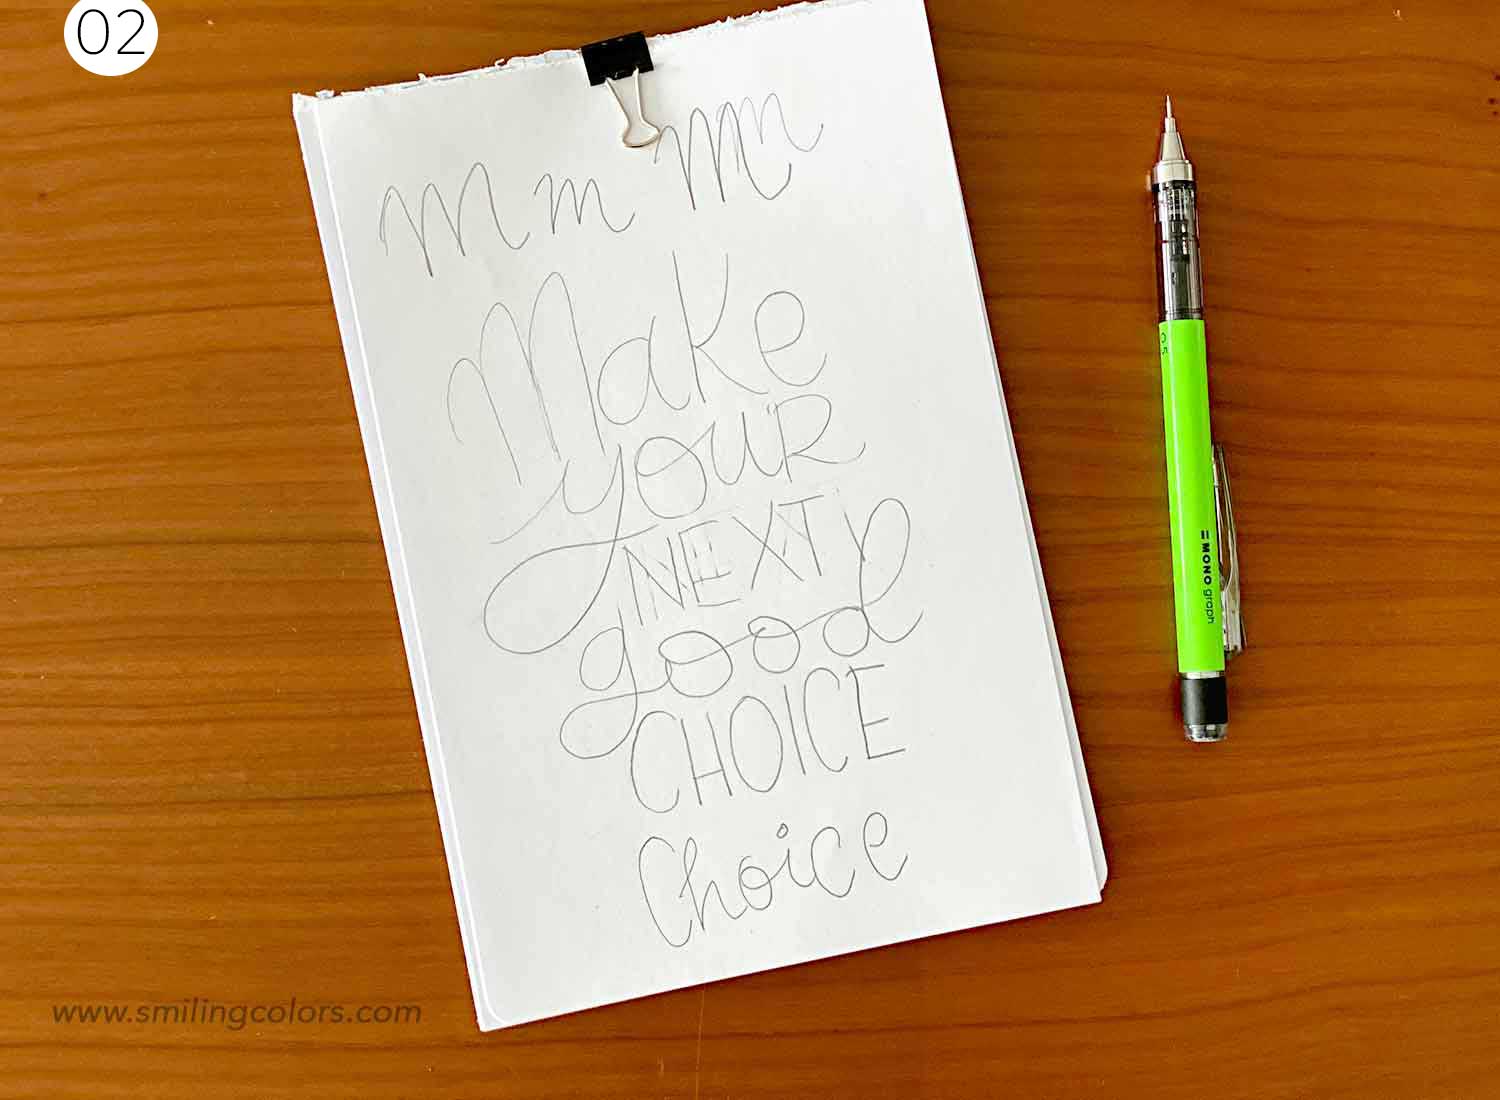 02
M m M M
Make
youR
NEXT
good
CHOICE
Choice
0.5
MONO graph
www.smilingcolors.com